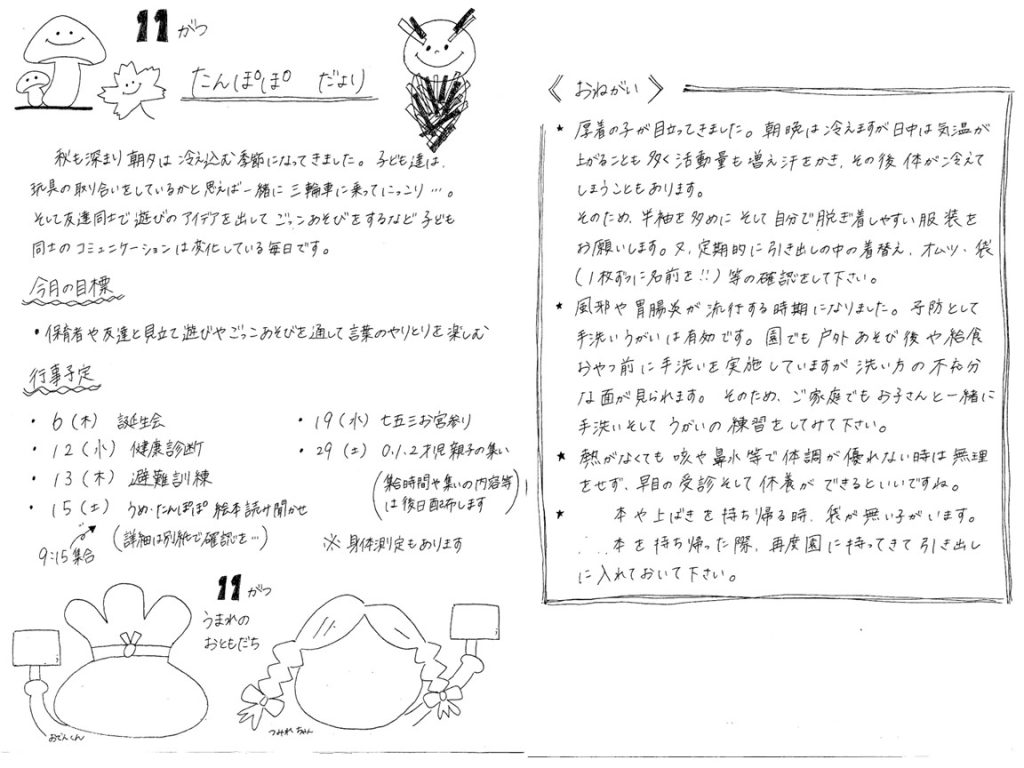 11がつ
たんぽぽ だより
秋も深まり朝夕は冷え込む季節になってきました。子ども達は、
玩具の取り合いをしているかと思えば一緒に三輪車に乗ってにっこり…。
そして友達同士で遊びのアイデアを出してごっこあそびをするなど子ども
同士のコミュニケーションは変化している毎日です。
今月の目標
・保育者や友達と見立て遊びやごっこあそびを通して言葉のやりとりを楽しむ
行事予定
・6(木) 誕生会
・12(水) 健康診断
・13(木) 避難訓練
・15(土) うめ・たんぽぽ 絵本読み聞かせ
9:15集合
(詳細は別紙で確認を…)
・19(水) 七五三お宮参り
・29(土) 0.1.2才児親子の集い
(集合時間や集いの内容等
は後日配布します)
※身体測定もあります
11がつ
うまれの
おともだち
おでんくん
つみれちゃん
《おねがい》
★ 厚着の子が目立ってきました。朝晩は冷えますが日中は気温が
上がることも多く活動量も増え汗をかき、その後体が冷えて
しまうこともあります。
そのため、半袖を多めにそして自分で脱ぎ着しやすい服装を
お願いします。又、定期的に引き出しの中の着替え、オムツ、袋
(1枚ずつに名前を!!)等の確認をして下さい。
★ 風邪や胃腸炎が流行する時期になりました。予防として
手洗いうがいは有効です。園でも戸外あそび後や給食
おやつ前に手洗いを実施していますが洗い方の不充分
な面が見られます。そのため、ご家庭でもお子さんと一緒に
手洗いそしてうがいの練習をしてみて下さい。
★ 熱がなくても咳や鼻水等で体調が優れない時は無理
をせず、早目の受診そして休養ができるといいですね。
★ 本や上ばきを持ち帰る時、袋が無い子がいます。
本を持ち帰った際、再度園に持ってきて引き出し
に入れておいて下さい。